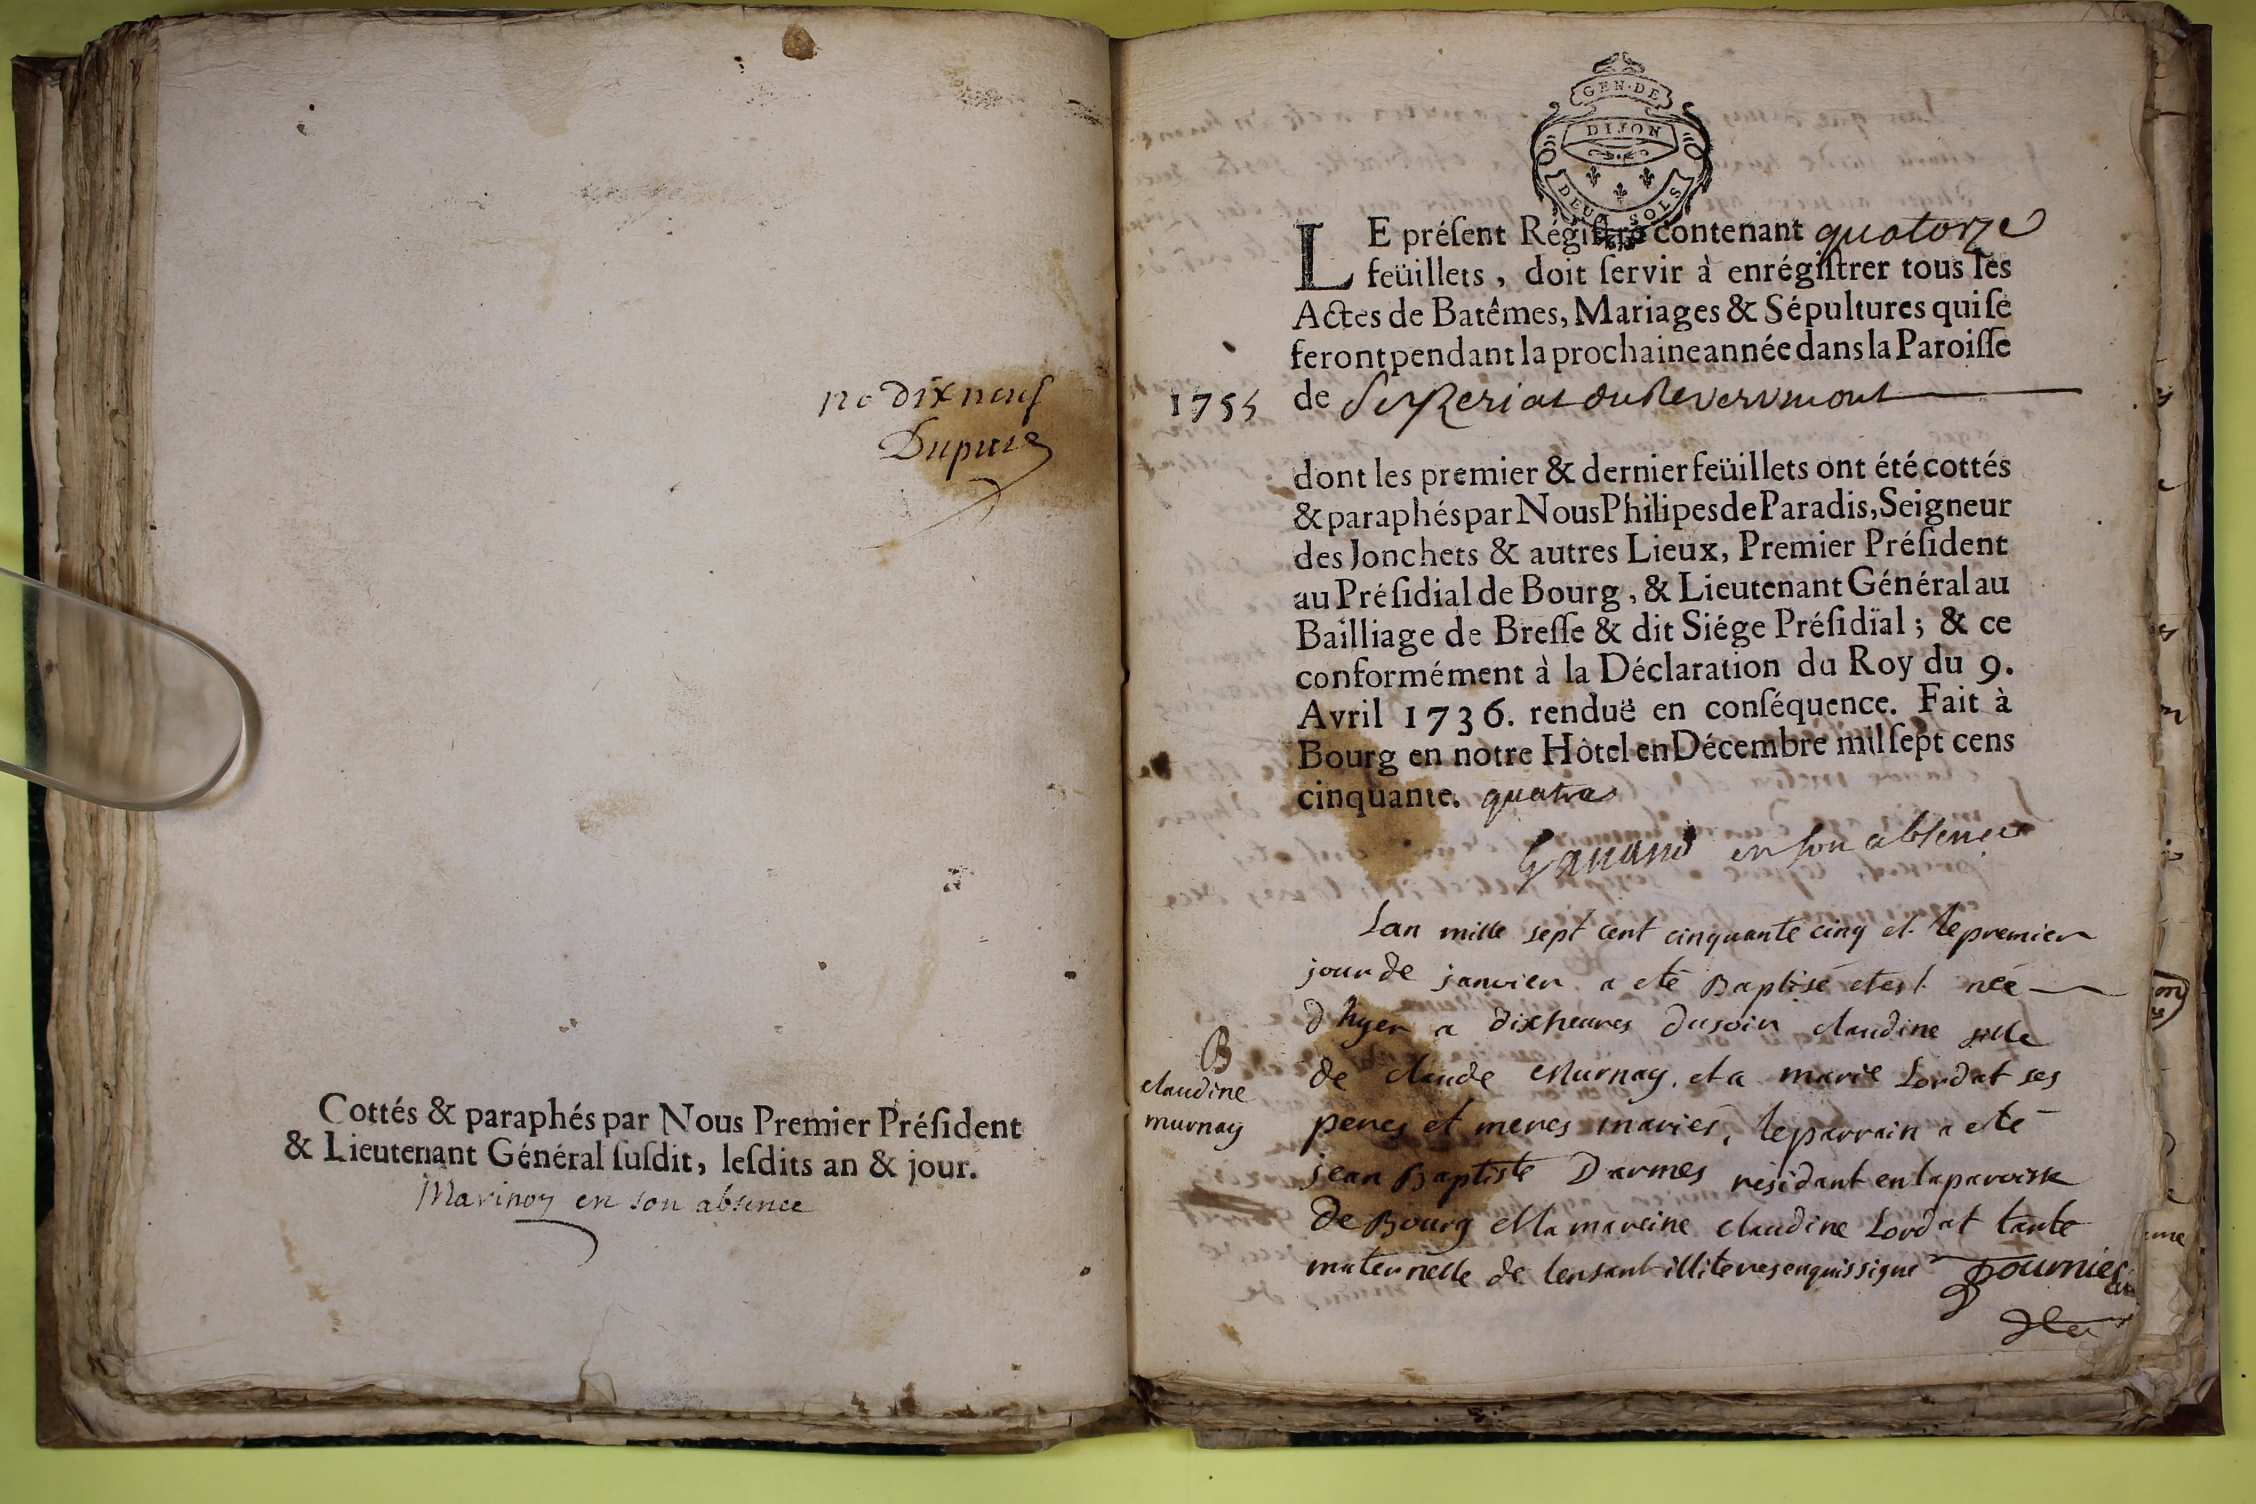 no dix neuf
Dupuis
Cottés & paraphés par Nous Premier Préſident
& Lieutenant Général ſuſdit, leſdits an & jour.
en son absence
GEN·DE
DIJON
DEUX SOLS
LE préſent Régiſtre contenant quatorze
feüillets, doit ſervir à enrégiſtrer tous les
Actes de Batêmes, Mariages & Sépultures qui ſe
feront pendant la prochaine année dans la Paroiſſe
1755
de du Revermont
dont les premier & dernier feüillets ont été cottés
& paraphés par Nous Philipes de Paradis, Seigneur
des Jonchets & autres Lieux, Premier Préſident
au Préſidial de Bourg, & Lieutenant Général au
Bailliage de Breſſe & dit Siége Préſidial; & ce
conformément à la Déclaration du Roy du 9.
Avril 1736. renduë en conſéquence. Fait à
Bourg en notre Hôtel en Décembre mil ſept cens
cinquante. quatre
en son absence
Lan mille sept cent cinquante cinq et le premier
jour de janvier a eté Baptisé et est née
d'hyer a dix heures du soir claudine fille
de claude Murnay et a marie Lordat ses
peres et meres mariés, le parrain a eté
jean Baptiste Darmes residant en la paroisse
de Bourg et la mareine claudine Lordat tante
maternelle de lenfant illiteres enquis signe Fournier
B
claudine
murnay